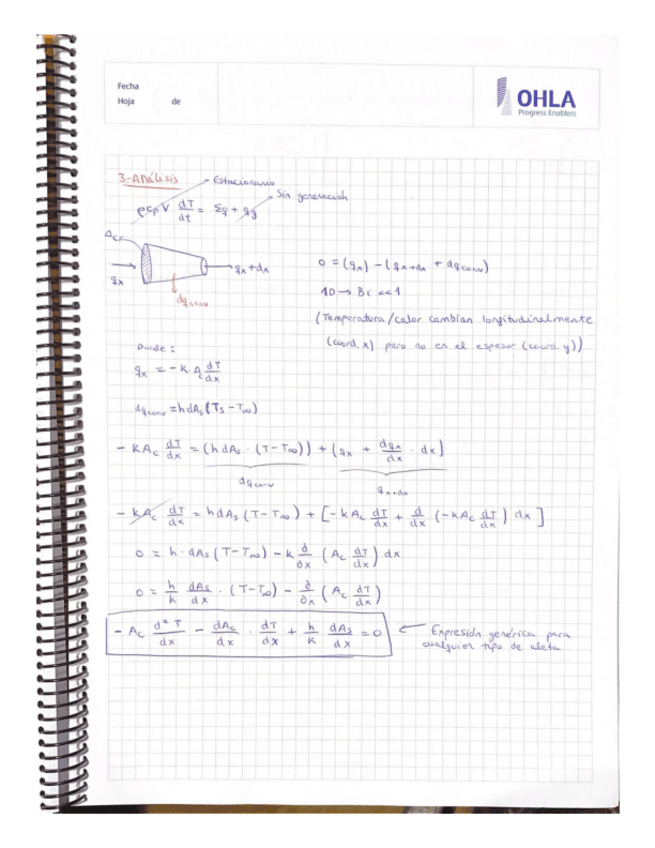 Fecha
Hoja de
OHLA
Progress Enablers
3-Análisis
Estacionario
Sin generación
ρcpV dT/dt = Σq + qg
Ac
qx
qx+dx
dqconv
0 = (qx) - (qx+dx + dqconv)
1D → Bi <<1
(Temperatura/calor cambian longitudinalmente
(coord. x) pero no en el espesor (coord. y))
Donde :
qx = -K Ac dT/dx
dqconv = h dAs (Ts - T∞)
- KAc dT/dx = (h dAs · (T-T∞)) + (qx + dqx/dx · dx)
dqconv
qx+dx
- KAc dT/dx = h dAs (T-T∞) + [-KAc dT/dx + d/dx (-KAc dT/dx) dx]
0 = h · dAs (T-T∞) - K ∂/∂x (Ac dT/dx) dx
0 = h/K dAs/dx · (T-T∞) - ∂/∂x (Ac dT/dx)
- Ac d²T/dx - dAc/dx · dT/dx + h/K dAs/dx = 0
Expresión genérica para
cualquier tipo de aleta.